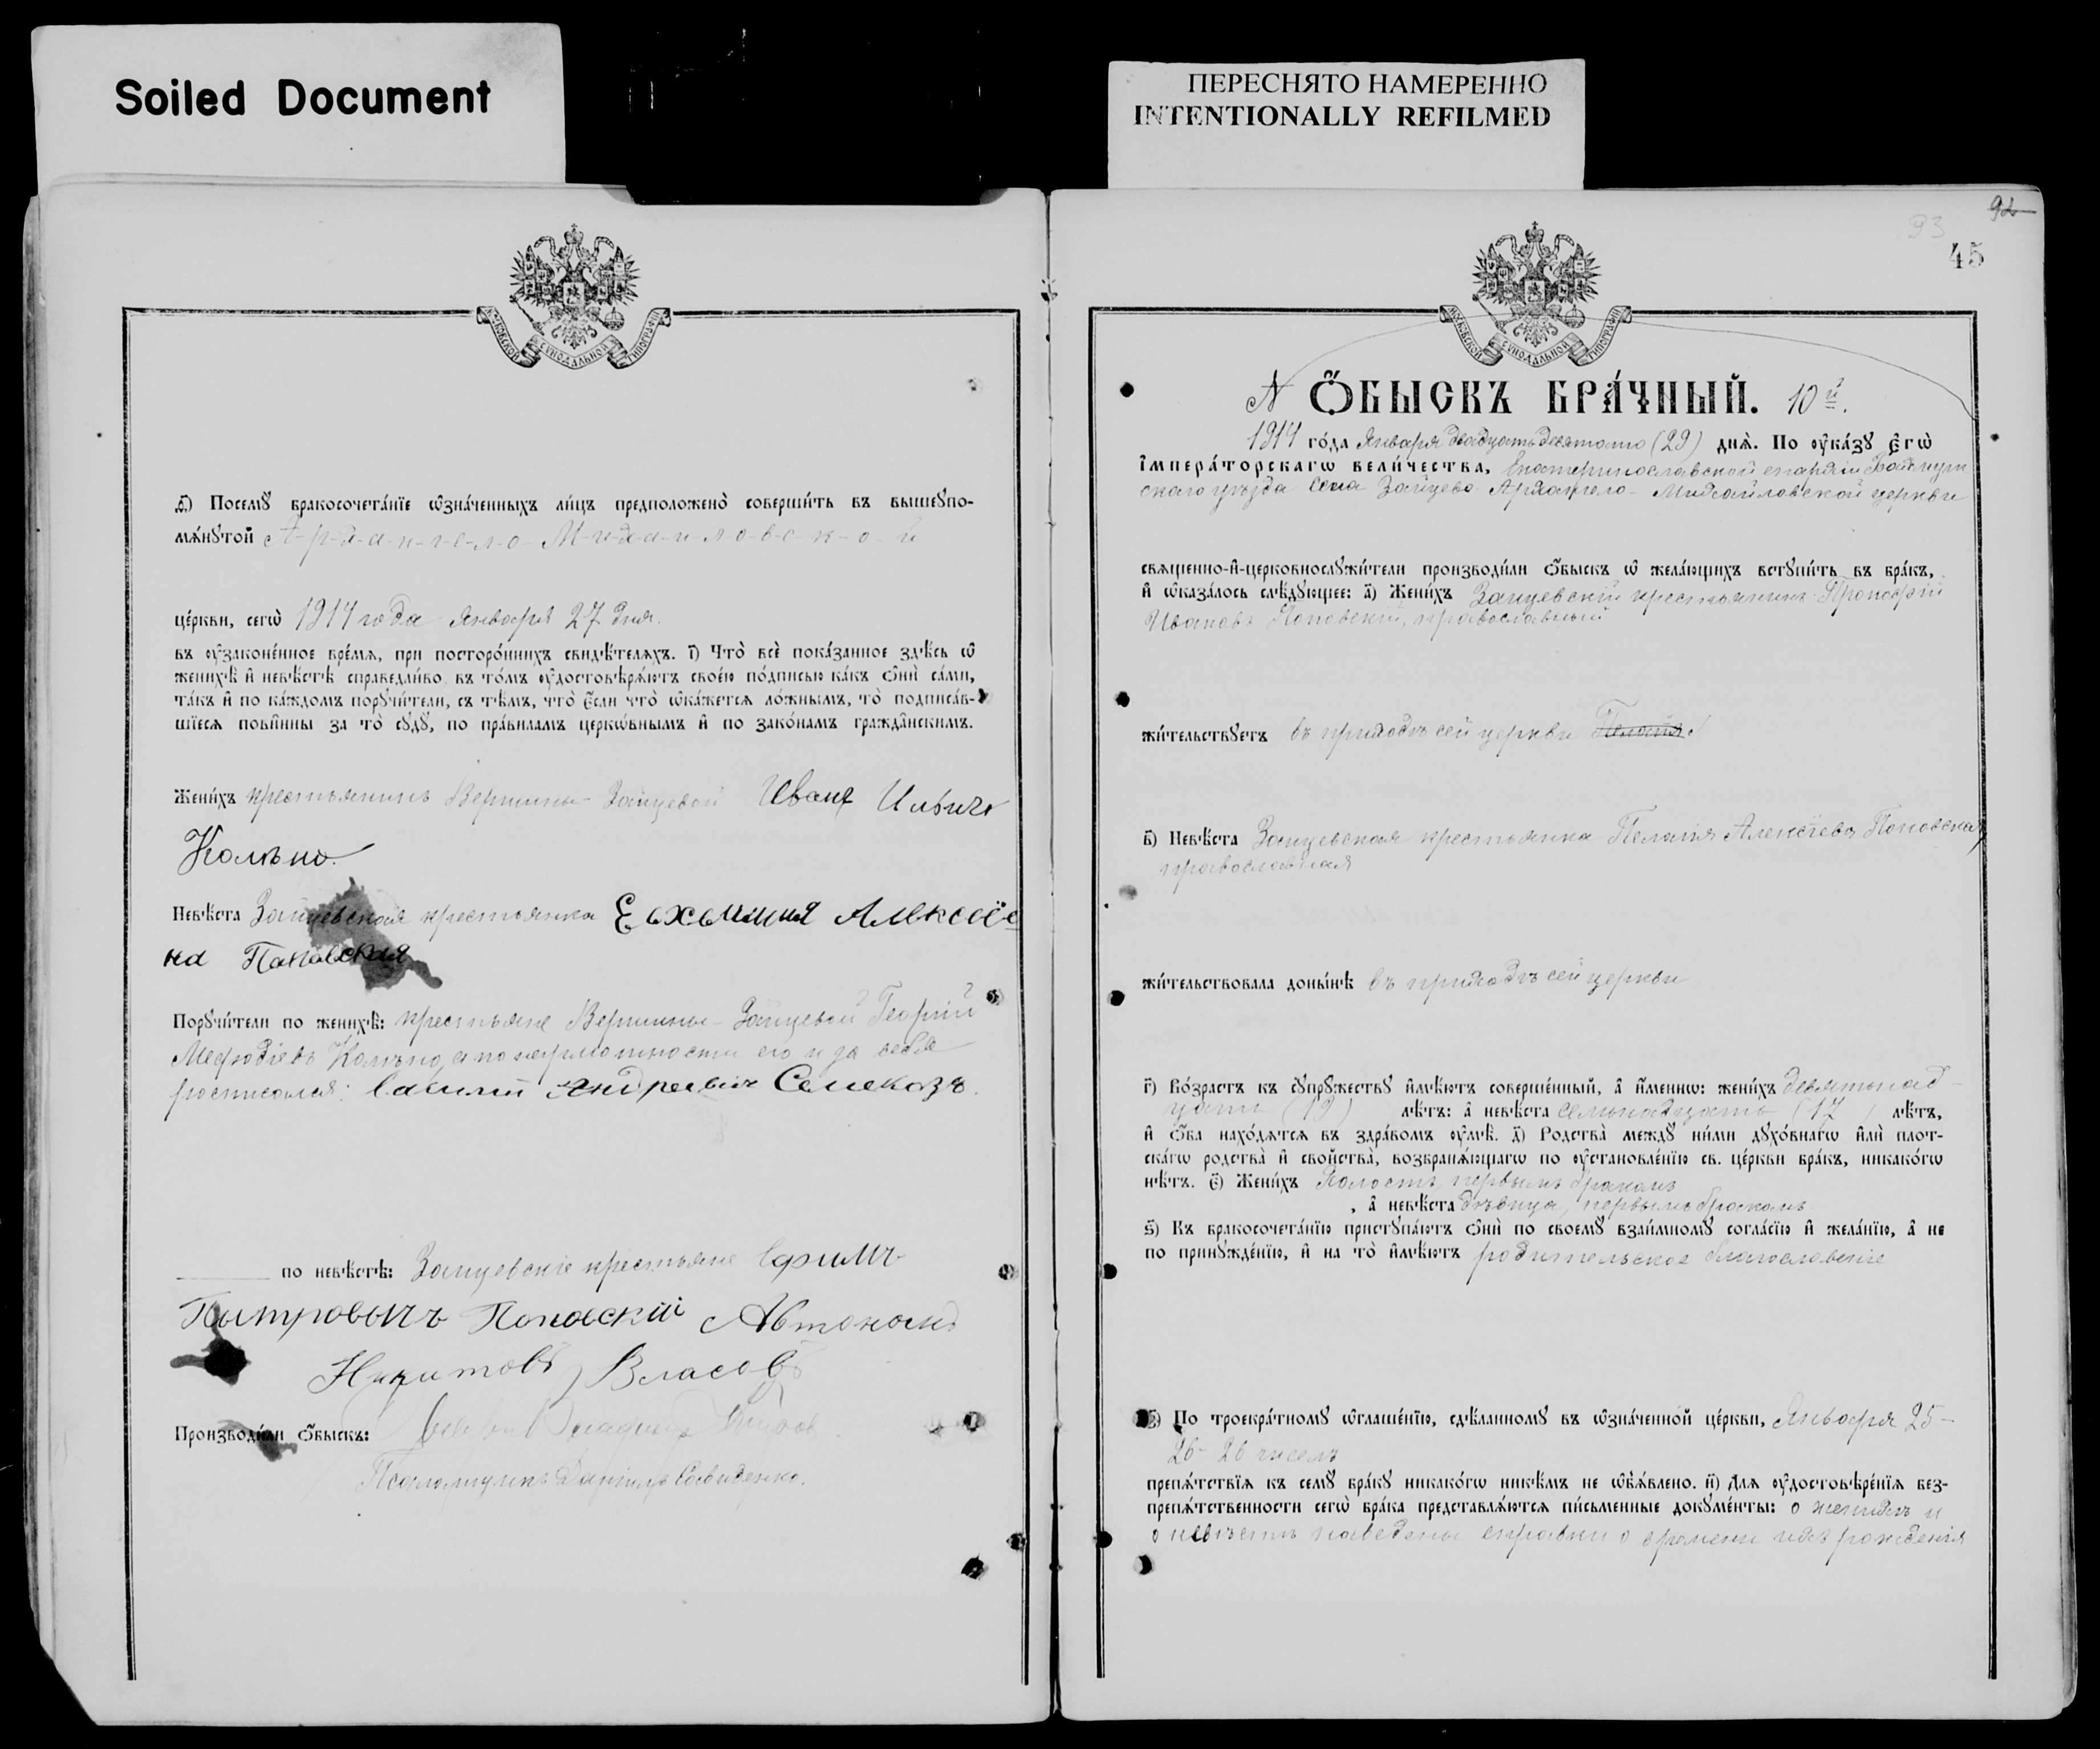 Soiled Document
ПЕРЕСНЯТО НАМЕРЕННО
INTENTIONALLY REFILMED
МОСКОВСКОЙ СѴНОДАЛЬНОЙ ТИПОГРАФІИ
ѳ҃) Посемꙋ̀ бракосочета́нїе ѡ҆зна́ченныхъ ли́цъ предположено̀ соверши́ть въ вышеꙋпо-
мѧ́нꙋтой А-р-х-а-н-г-е-л-о- М-и-х-а-и-л-о-в-с-к-о-й
це́ркви, сегѡ̀ 1914 года Января 27 дня.
въ ᲂу҆зако́ненное вре́мѧ, при посторо́ннихъ свидѣ́телѧхъ. і҃) Что̀ всѐ пока́занное здѣ́сь ѡ҆
женихѣ̀ и҆ невѣ́стѣ справедли́во, въ то́мъ ᲂу҆достовѣрѧ́ютъ свое́ю по́дписью ка́къ ѻ҆нѝ са́ми,
та́къ и҆ по ка́ждомъ порꙋчи́тели, съ тѣ́мъ, что̀ є҆́сли что̀ ѡ҆ка́жетсѧ ло́жнымъ, то̀ подписа́в-
шїесѧ пови́нны за то̀ сꙋдꙋ̀, по пра́виламъ церкѡ́внымъ и҆ по зако́намъ гражда́нскимъ.
Жени́хъ крестьянинъ Вершины-Зайцевой Иванъ Ильичъ
Невѣ́ста Зайцевская крестьянка Евхемиия Алексеёв
на Панавская
Порꙋчи́тели по женихѣ̀: крестьяне Вершины-Зайцевой Георгій
Мефодіевъ а по неграмотности его и за себя
росписался: Василий Андреевич
по невѣ́стѣ: Зайцевскіе крестьяне Ефимъ
Пытровычъ Попавскій Автономъ
Никитовъ Власовъ
Производи́ли ѻ҆́быскъ:
Псаломщикъ Даніилъ Савиденко.
92
93
45
МОСКОВСКОЙ СѴНОДАЛЬНОЙ ТИПОГРАФІИ
N Ѻ҆́БЫСКЪ БРА́ЧНЫЙ. 10й.
1914 го́да Января двадцать девятаго (29) днѧ̀. По ᲂу҆ка́зꙋ Є҆гѡ̀
І҆мпера́торскагѡ вели́чества, Екатеринославской епархіи Бахмут
скаго уѣзда села Зайцево Архангело-Михайловской церкви
свѧще́нно-и҆-церковнослꙋжи́тели производи́ли ѻ҆́быскъ ѡ҆ жела́ющихъ встꙋпи́ть въ бра́къ,
и҆ ѡ҆каза́лось слѣ́дꙋющее: а҃) Жени́хъ Зайцевскій крестьянинъ Прокофій
Ивановъ Поповскій, православный
жи́тельствꙋетъ въ приходѣ сей церкви
в҃) Невѣ́ста Зайцевская крестьянка Пелагія Алексіева Поповская,
православная
жи́тельствовала доны́нѣ въ приходѣ сей церкви
г҃) Во́зрастъ къ сꙋпрꙋ́жествꙋ и҆мѣ́ютъ соверше́нный, а҆ и҆́меннѡ: жени́хъ девятнад-
цати (19) лѣ́тъ: а҆ невѣ́ста семьнадцать (17) лѣ́тъ,
и҆ ѻ҆́ба нахо́дѧтсѧ въ здра́вомъ ᲂу҆мѣ̀. д҃) Родства̀ междꙋ̀ ни́ми дꙋхо́внагѡ и҆лѝ плот-
ска́гѡ родства̀ и҆ сво́йства, возбранѧ́ющагѡ по ᲂу҆становле́нїю св. це́ркви бра́къ, никако́гѡ
нѣ́тъ. є҃) Жени́хъ холостъ, первымъ бракомъ
, а҆ невѣ́ста дѣвица, первымъ бракомъ
ѕ҃) Къ бракосочета́нїю пристꙋпа́ютъ ѻ҆нѝ по своемꙋ̀ взаи́мномꙋ согла́сїю и҆ жела́нїю, а҆ не
по принꙋжде́нїю, и҆ на то̀ и҆мѣ́ютъ родительское благословеніе
з҃) По троекра́тномꙋ ѡ҆глаше́нїю, сдѣ́ланномꙋ въ ѡ҆зна́ченной це́ркви, Января 25-
26- 26 чиселъ
препѧ́тствїѧ къ семꙋ̀ бра́кꙋ никако́гѡ никѣ́мъ не ѡ҆б̾ѧ́влено. и҃) Длѧ ᲂу҆достовѣре́нїѧ без-
препѧ́тственности сегѡ̀ бра́ка представлѧ́ютсѧ пи́сьменные докꙋме́нты: о женихѣ и
о невѣстѣ наведены справки о времени ихъ рожденія